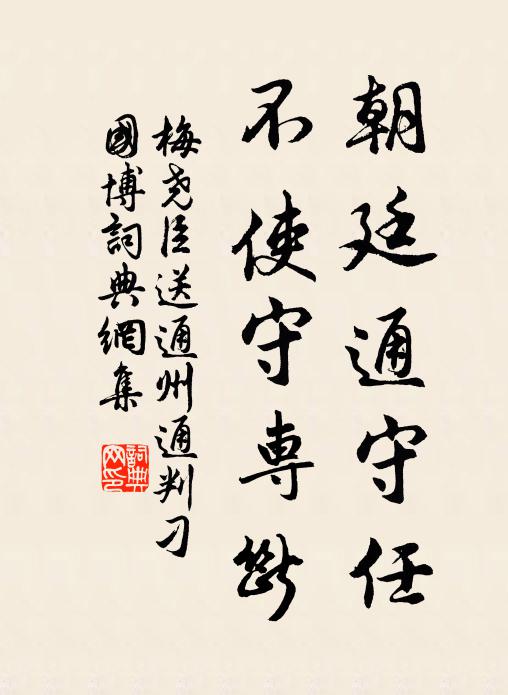 朝廷通守任
不使守専斷
梅尧臣送通州通判刁
國博詞典網集
詞典網印